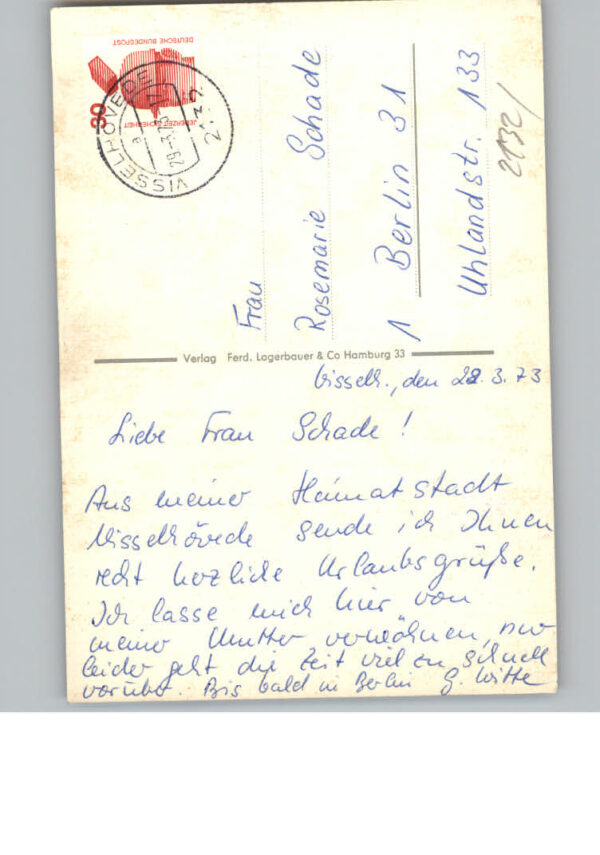 DEUTSCHE BUNDESPOST
JEDERZEIT SICHERHEIT
30
VISSELHÖVEDE
2132
a
Frau
Rosemarie Schade
1 Berlin 31
Uhlandstr. 133
2132/
Verlag Ferd. Lagerbauer & Co Hamburg 33
Visselh., den 28.3.73
Liebe Frau Schade!
Aus meiner Heimatstadt
Visselhövede sende ich Ihnen
recht herzliche Urlaubsgrüße.
Ich lasse mich hier von
meiner Mutter verwöhnen, nur
leider geht die Zeit viel zu schnell
vorüber. Bis bald in Berlin G. Witte